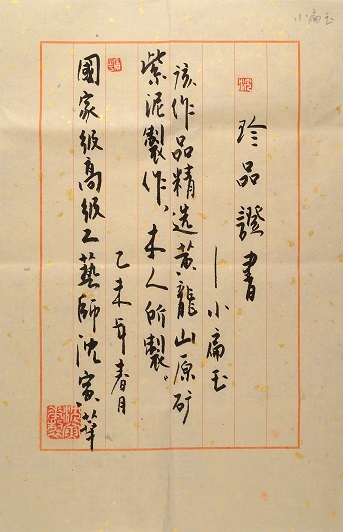 小扁玉
珍品證書
—小扁玉
该作品精选黄龍山原矿
紫泥製作、本人所製。
乙未年春月
國家级高级工藝師沈家華